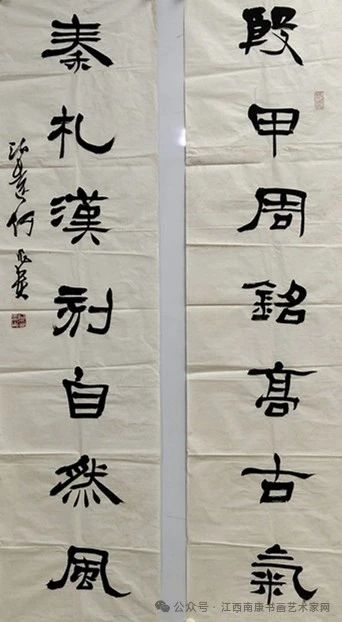 殷甲周銘高古氣
秦札漢刻自然風
公众号·江西南康书画艺术家网